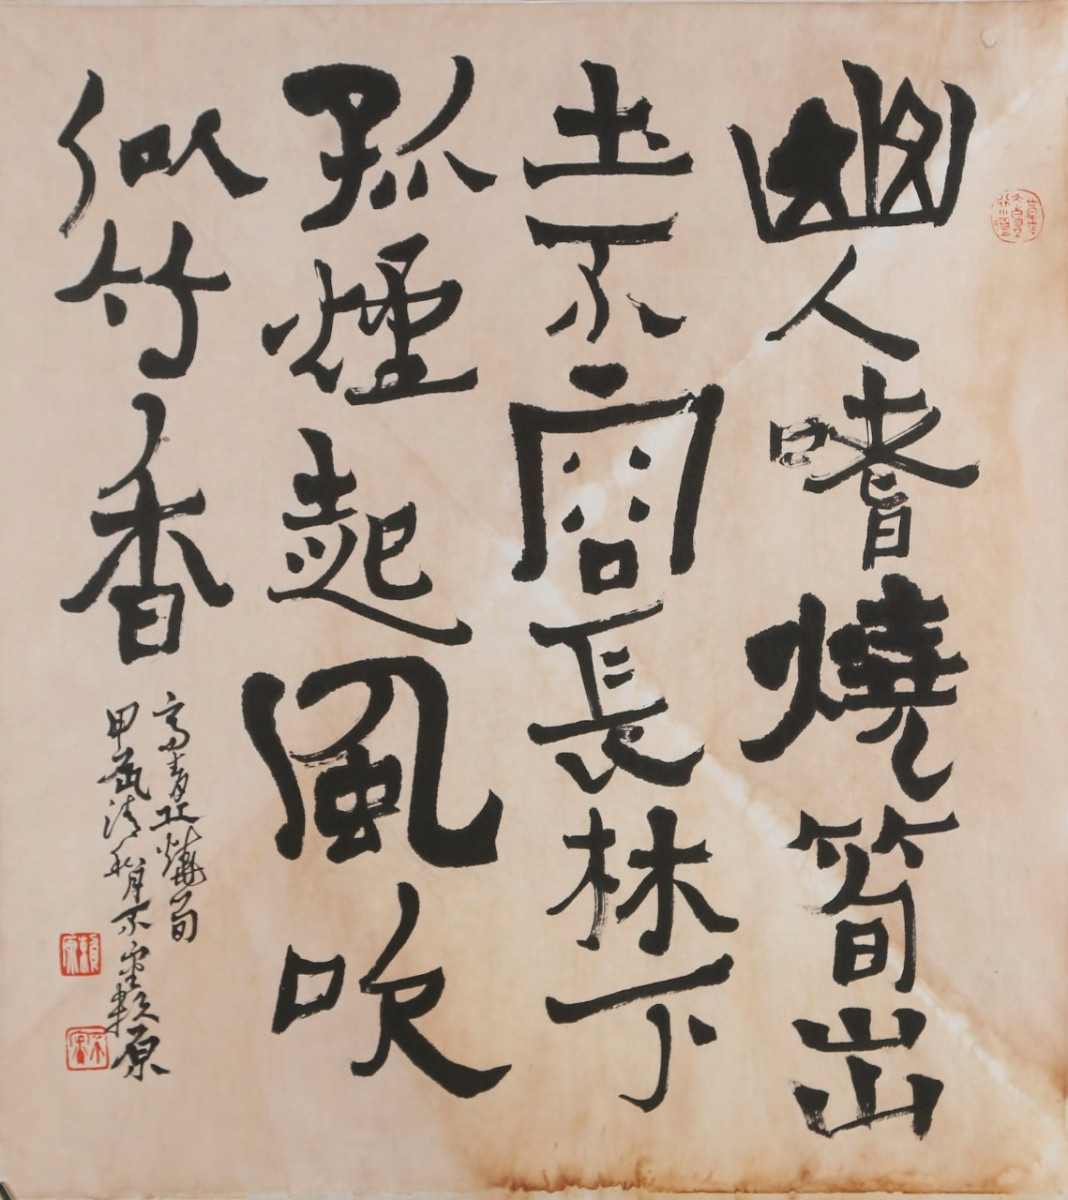 幽人嗜燒筍出
土不容長林下
孤煙起風吹
似竹香
高青丘燒筍
甲辰清和月不室賴原